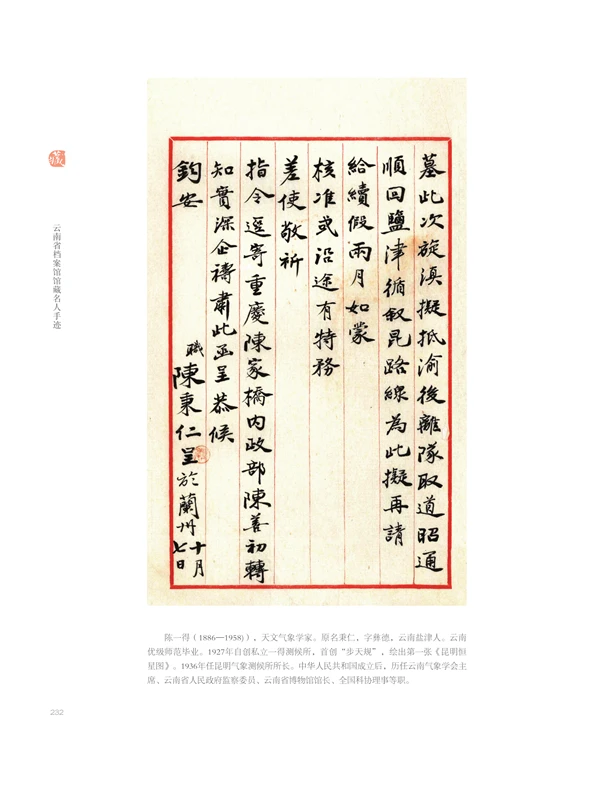 墓此次旋滇擬抵渝後離隊取道昭通
順回鹽津循叙昆路線為此擬再請
給續假兩月如蒙
核准或沿途有特務
差使敬祈
指令逕寄重慶陳家橋内政部陳善初轉
知實深企禱肅此函呈恭候
鈞安
職陳秉仁呈於蘭州十月七日
藏
云南省档案馆馆藏名人手迹
陈一得（1886—1958)），天文气象学家。原名秉仁，字彝德，云南盐津人。云南
优级师范毕业。1927年自创私立一得测候所，首创“步天规”，绘出第一张《昆明恒
星图》。1936年任昆明气象测候所所长。中华人民共和国成立后，历任云南气象学会主
席、云南省人民政府监察委员、云南省博物馆馆长、全国科协理事等职。
232